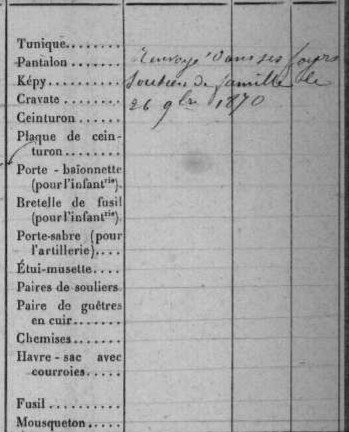 Tunique........
Pantalon.......
Képy.........
Cravate.......
Ceinturon......
Plaque de cein-
turon........
Porte-baïonnette
(pour l'infantrie).
Bretelle de fusil
(pour l'infantrie).
Porte-sabre (pour
l'artillerie)....
Étui-musette....
Paires de souliers
Paire de guêtres
en cuir.......
Chemises.......
Havre-sac avec
courroies.....
Fusil..........
Mousqueton.....
Renvoyé dans ses foyers
Soutien de famille le
26 9bre 1870